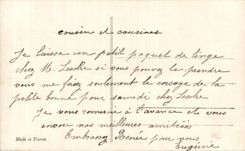 cousin et cousines
Je laisse un petit paquet de linge
chez M. si vous pouvez le prendre
vous me ferez seulement le corsage de la
petite bonne pour samedi chez
Je vous remercie à l'avance et vous
envoie nos meilleures amitiés
Embrassez Renée pour nous
Eugénie
Made in France